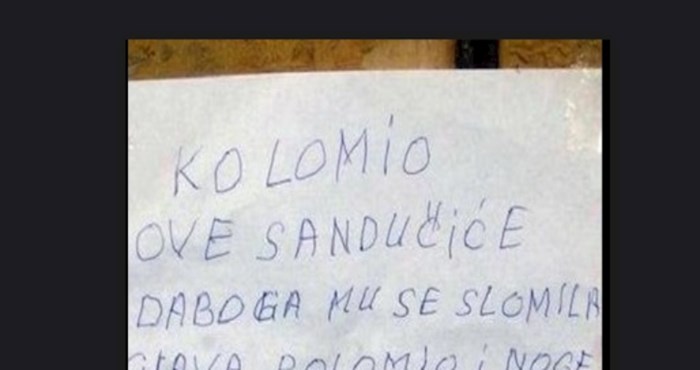 KO LOMiO
OVE SANDUČiĆE
DABOGA MU SE SLOMILA
GLAVA POLOMIO i NOGE